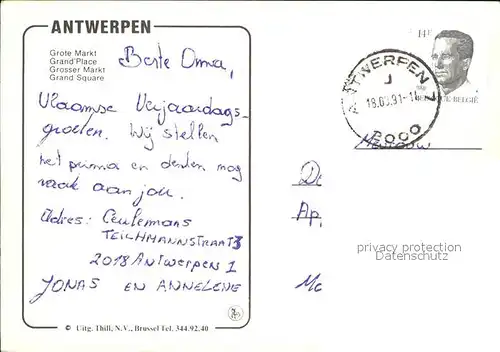 ANTWERPEN
Grote Markt
Grand'Place
Grosser Markt
Grand Square
Beste Oma,
Vlaamse Verjaardags-
groeten. Wij stellen
het prima en denken nog
vaak aan jou.
Adres: Ceulemans
TEICHMANNSTRAAT 3
2018 ANTWERPEN 1
JONAS EN ANNELENE
© Uitg. Thill, N.V., Brussel Tel. 344.92.40
14F
ANTWERPEN
BELGIË
2000
Mevrouw
privacy protection
Datenschutz